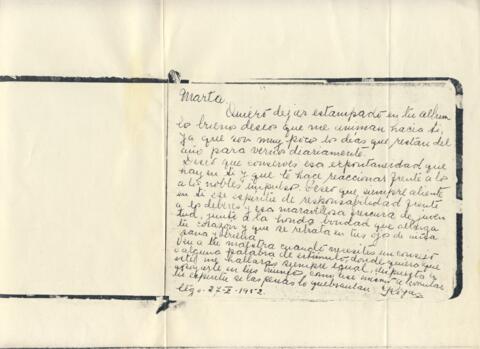 Marta,
Quiero dejar estampado en tu album
lo buenos deseos que me animan hacia ti,
ya que son muy poco los días que restan del
año para vernos diariamente.
Deseo que conserves esa espontaneidad que
hay en ti y que te hace reaccionar frente a lo
a los nobles impulsos. Deseo que siempre aliente
en ti ese espíritu de responsabilidad frente
a los deberes y esa maravillosa frescura de juven
tud, junto a la honda bondad que alberga
tu corazón y que se retrata en tus ojos de niña
sana y buena.
Ven a tu maestra cuando necesites un consejo
o alguna palabra de estímulo, donde quiera que
esté, me hallarás siempre igual, dispuesta a
apoyarte en tus triunfos, como así mismo a
tu espíritu si las penas lo quebrantan.
27-X-1952.